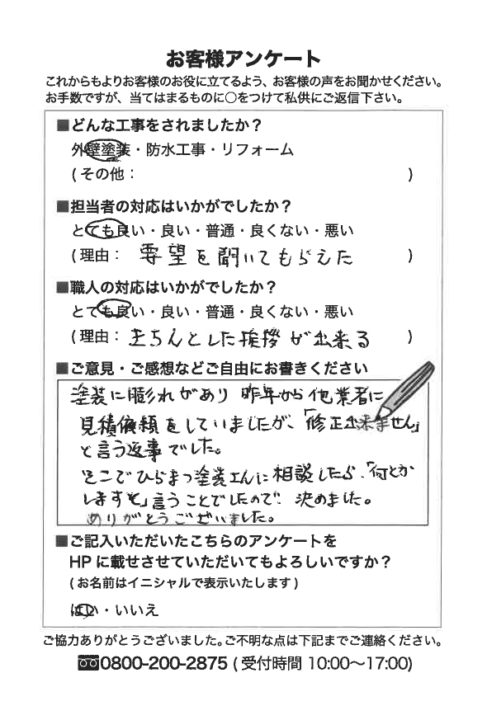 お客様アンケート
これからもよりお客様のお役に立てるよう、お客様の声をお聞かせください。
お手数ですが、当てはまるものに○をつけて私供にご返信下さい。
■どんな工事をされましたか？
外壁塗装・防水工事・リフォーム
(その他： )
■担当者の対応はいかがでしたか？
とても良い・良い・普通・良くない・悪い
(理由： 要望を聞いてもらえた )
■職人の対応はいかがでしたか？
とても良い・良い・普通・良くない・悪い
(理由： きちんとした挨拶が出来る )
■ご意見・ご感想などご自由にお書きください
塗装に膨れがあり 昨年から他業者に
見積依頼をしていましたが、「修正出来ません」
と言う返事でした。
そこでひらまつ塗装さんに相談したら、「何とか
しますと」言うことでしたので 決めました。
ありがとうございました。
■ご記入いただいたこちらのアンケートを
HPに載せさせていただいてもよろしいですか？
(お名前はイニシャルで表示いたします)
はい・いいえ
ご協力ありがとうございました。ご不明な点は下記までご連絡ください。
0800-200-2875 (受付時間 10:00〜17:00)